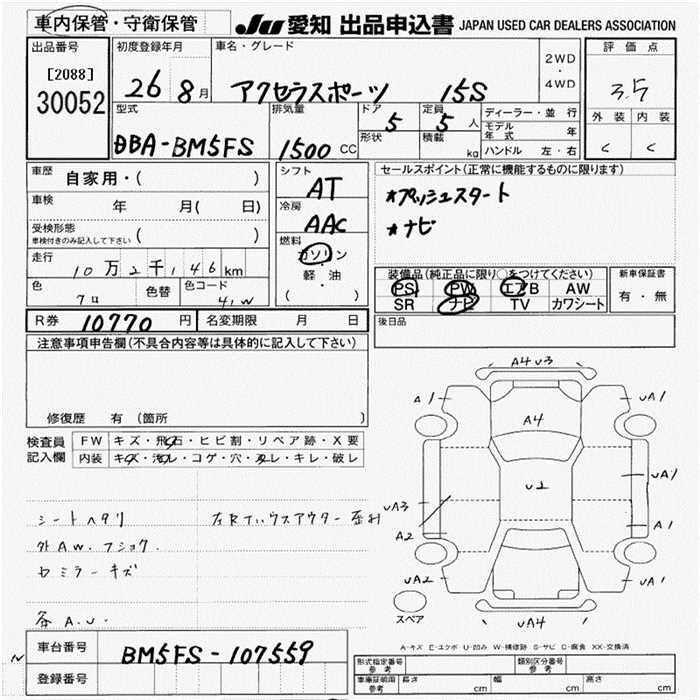 車内保管・守衛保管
JU 愛知 出品申込書 JAPAN USED CAR DEALERS ASSOCIATION
出品番号
[2088]
30052
初度登録年月
26 8月
車名・グレード
アクセラスポーツ 15S
2WD
・
4WD
評価点
3.5
外装 内装
C C
型式
DBA-BM5FS
排気量
1500 CC
ドア
5
形状
定員
5人
積載
kg
ディーラー・並行
モデル年式 年
ハンドル 左・右
車歴
自家用・( )
車検
年 月( 日)
受検形態
車検付きのみ記入して下さい ( )
走行
10万2千146km
色
色替
色コード
41W
シフト
AT
冷房
AAC
燃料
ガソリン
・
軽・油
( )
セールスポイント(正常に機能するものに限ります)
*プッシュスタート
*ナビ
装備品(純正品に限り○をつけてください)
PS PW エアB AW
SR ナビ TV カワシート
新車保証書
有・無
R券 10770円
名変期限 月 日
後日品
注意事項申告欄(不具合内容等は具体的に記入して下さい)
修復歴 有(箇所 )
検査員記入欄
FW キズ・飛石・ヒビ割・リペア跡・X要
内装 キズ・汚れ・コゲ・穴・スレ・キレ・破レ
シートヘタリ
外AW.フショク.
ミラーキズ
各A.U.
A4U3
A1
UA1
A4
U2
UA1
UA3
A2
A1
UA2
UA1
UA4
スペア
A-キズ E-エクボ U-凹み W-補修跡 S-サビ C-腐食 XX-交換済
車台番号
BM5FS-107559
登録番号
形式指定番号
参考
類別区分番号
参考
車庫証明用
参考
長さ cm
幅 cm
高さ cm